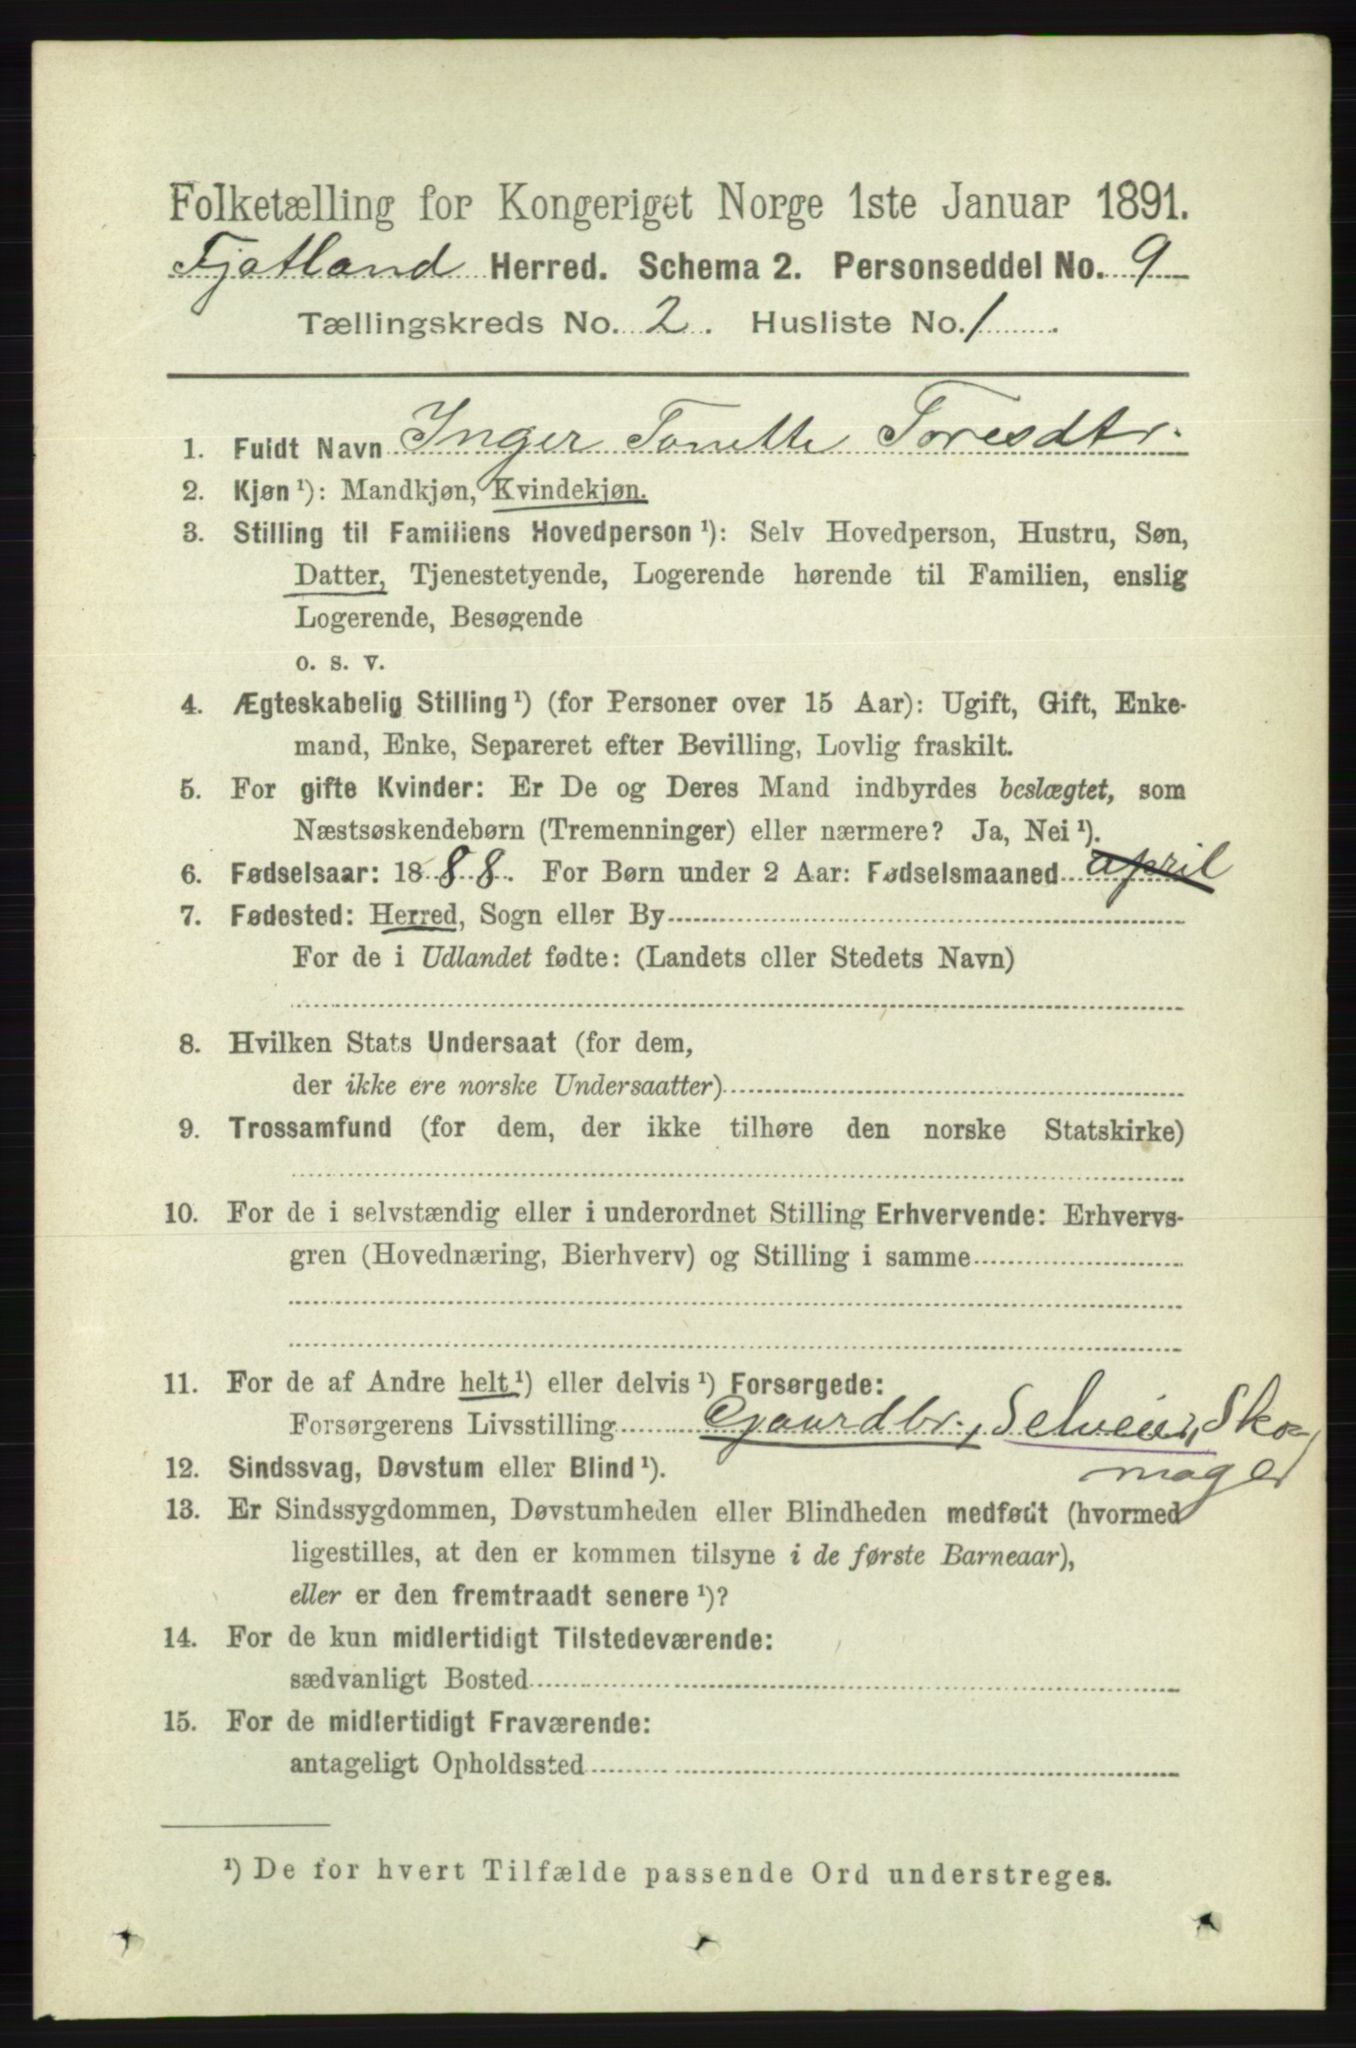 Folketælling for Kongeriget Norge 1ste Januar 1891.
Fjotland Herred. Schema 2. Personseddel No. 9
Tællingskreds No. 2. Husliste No. 1
1. Fuldt Navn Inger Tonette Toresdtr.
2. Kjøn ¹): Mandkjøn, Kvindekjøn.
3. Stilling til Familiens Hovedperson ¹): Selv Hovedperson, Hustru, Søn,
Datter, Tjenestetyende, Logerende hørende til Familien, enslig
Logerende, Besøgende
o. s. v.
4. Ægteskabelig Stilling ¹) (for Personer over 15 Aar): Ugift, Gift, Enke-
mand, Enke, Separeret efter Bevilling, Lovlig fraskilt.
5. For gifte Kvinder: Er De og Deres Mand indbyrdes beslægtet, som
Næstsøskendebørn (Tremenninger) eller nærmere? Ja, Nei ¹).
6. Fødselsaar: 1888. For Børn under 2 Aar: Fødselsmaaned april
7. Fødested: Herred, Sogn eller By
For de i Udlandet fødte: (Landets eller Stedets Navn)
8. Hvilken Stats Undersaat (for dem,
der ikke ere norske Undersaatter)
9. Trossamfund (for dem, der ikke tilhøre den norske Statskirke)
10. For de i selvstændig eller i underordnet Stilling Erhvervende: Erhvervs-
gren (Hovednæring, Bierhverv) og Stilling i samme
11. For de af Andre helt ¹) eller delvis ¹) Forsørgede:
Forsørgerens Livsstilling Gaardbr., Selveier, Sko-
mager
12. Sindssvag, Døvstum eller Blind ¹).
13. Er Sindssygdommen, Døvstumheden eller Blindheden medfødt (hvormed
ligestilles, at den er kommen tilsyne i de første Barneaar),
eller er den fremtraadt senere ¹)?
14. For de kun midlertidigt Tilstedeværende:
sædvanligt Bosted
15. For de midlertidigt Fraværende:
antageligt Opholdssted
¹) De for hvert Tilfælde passende Ord understreges.